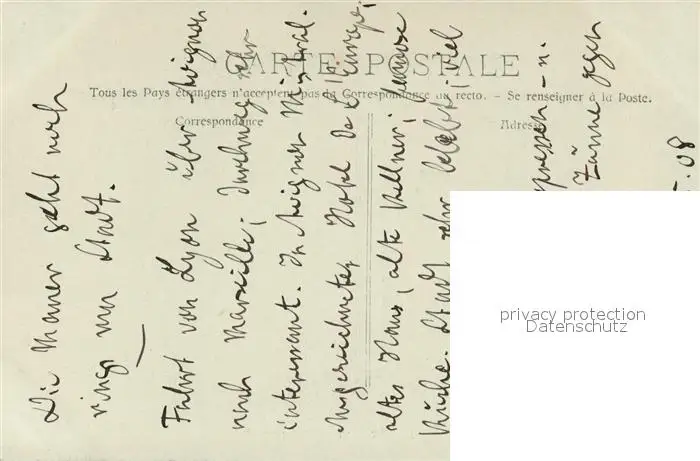 CARTE POSTALE
Tous les Pays étrangers n'acceptent pas la Correspondance au recto. - Se renseigner à la Poste.
Correspondance
Adresse
Die Mauer geht noch
rings um Stadt.
Fahrt von Lyon über Avignon
nach Marseille; durchweg sehr
interessant. In Avignon Mistral.
Ausgezeichnetes Hotel de l'Europe;
altes Haus, alte Kellner, famose
Küche. Stadt sehr belebt; viel
Zypressen- u.
Zäune gegen
08
privacy protection
Datenschutz